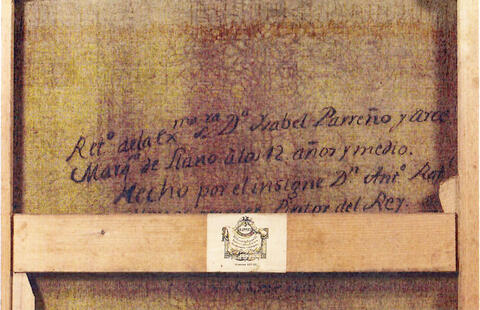 Ret.º de la Ex.ma S.ra D.ª Isabel Parreño y Arce
Marq.sa de Llano â los 12 años y medio.
Hecho por el insigne D.n Ant.º Raf.l
Pintor del Rey.